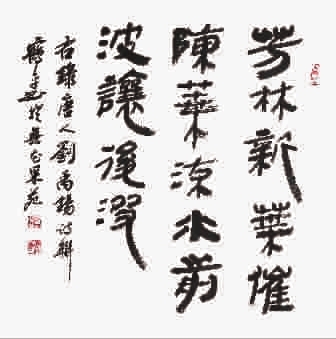 芳林新葉催
陳葉流水前
波讓後波
右錄唐人劉禹錫詩聯
於